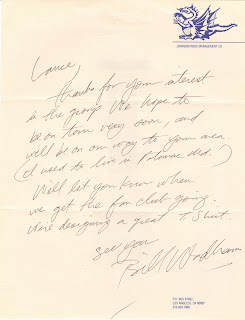 Lance,
Thanks for your interest
in the group. We hope to
be on tour very soon, and
will be on our way to your area
(I used to live in
Will let you know when
we get the fan club going.
We're designing a great T Shirt
see you
Bill Wadhams
MANAGEMENT CO
P.O. BOX
LOS ANGELES, CA